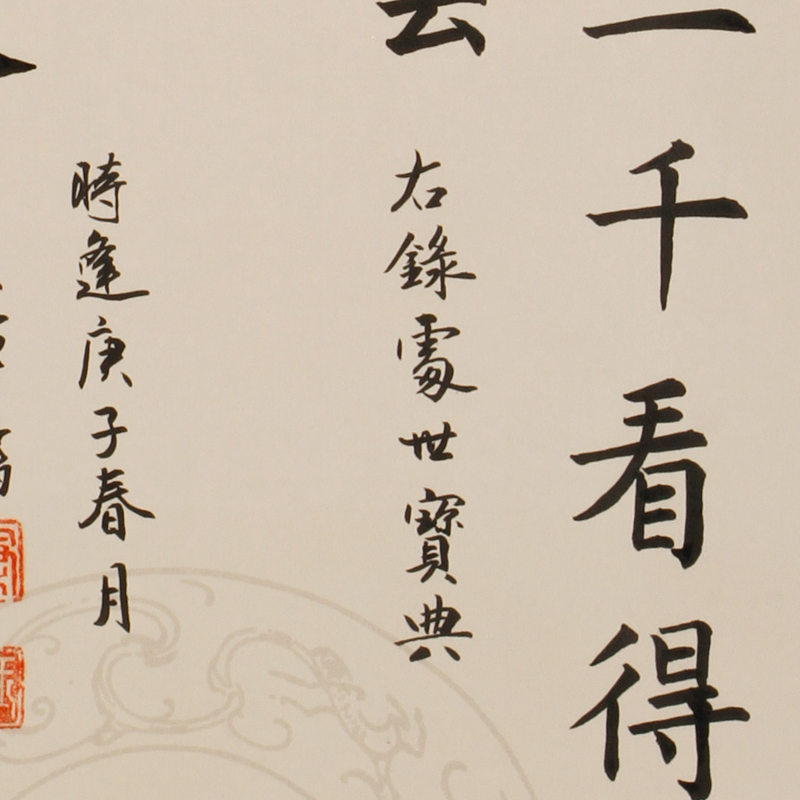 一千看得
右錄處世寶典
時逢庚子春月